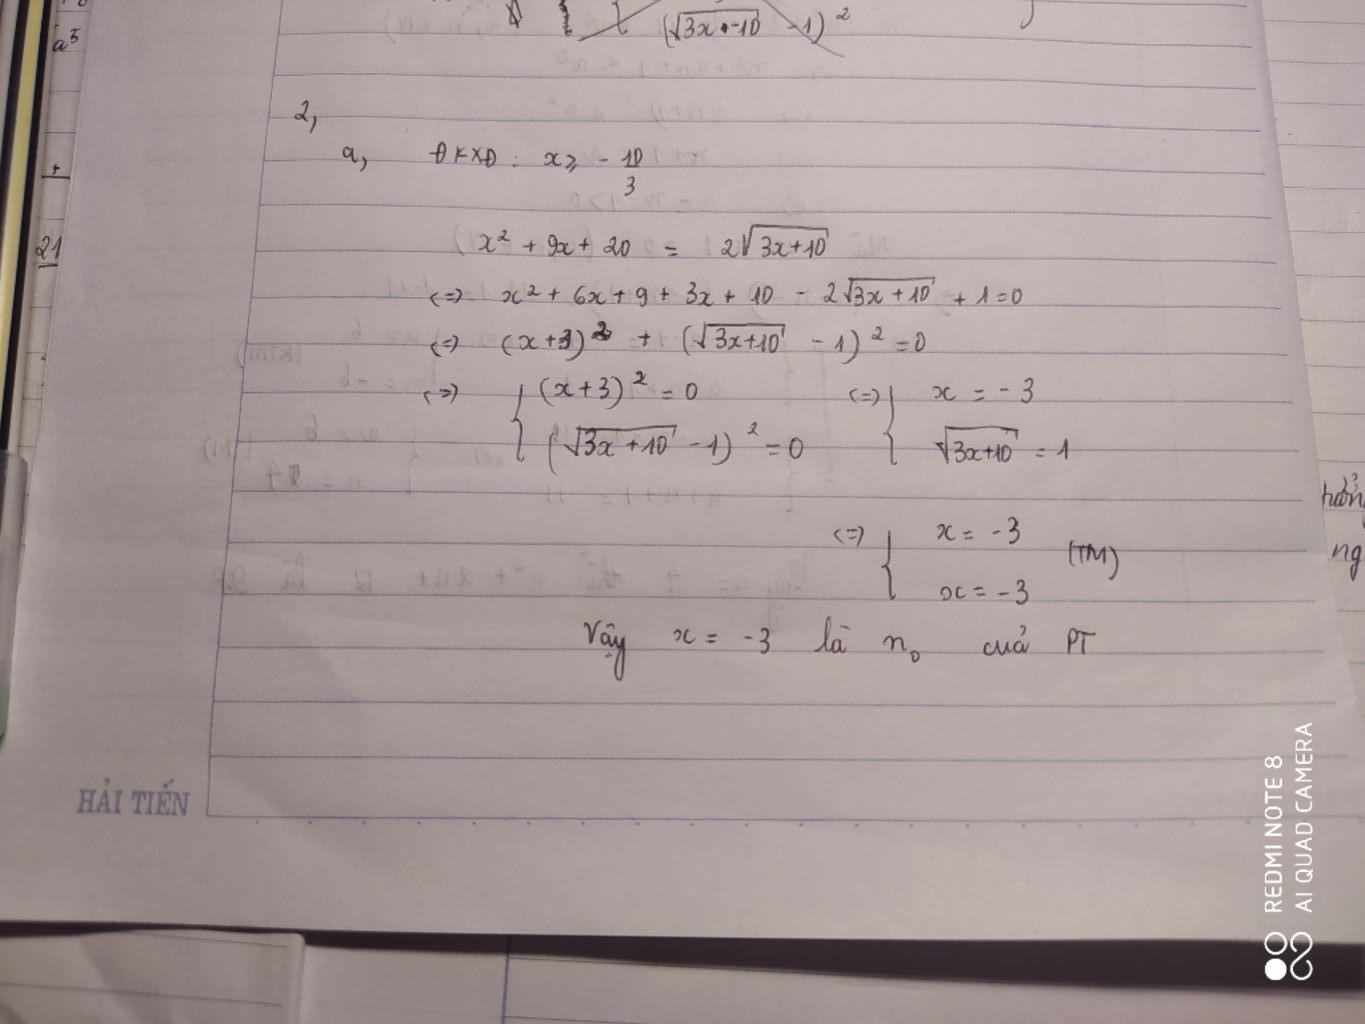 a⁵
+
21
(√3x+10 - 1)²
2,
a, ĐKXĐ : x ≥ - 10/3
x² + 9x + 20 = 2√3x+10
<=> x² + 6x + 9 + 3x + 10 - 2√3x+10 + 1 = 0
<=> (x+3)² + (√3x+10 - 1)² = 0
<=> { (x+3)² = 0 <=> { x = -3
(√3x+10 - 1)² = 0 √3x+10 = 1
<=> { x = -3 (TM)
x = -3
Vậy x = -3 là n₀ cuả PT
ng
HẢI TIẾN
REDMI NOTE 8
AI QUAD CAMERA